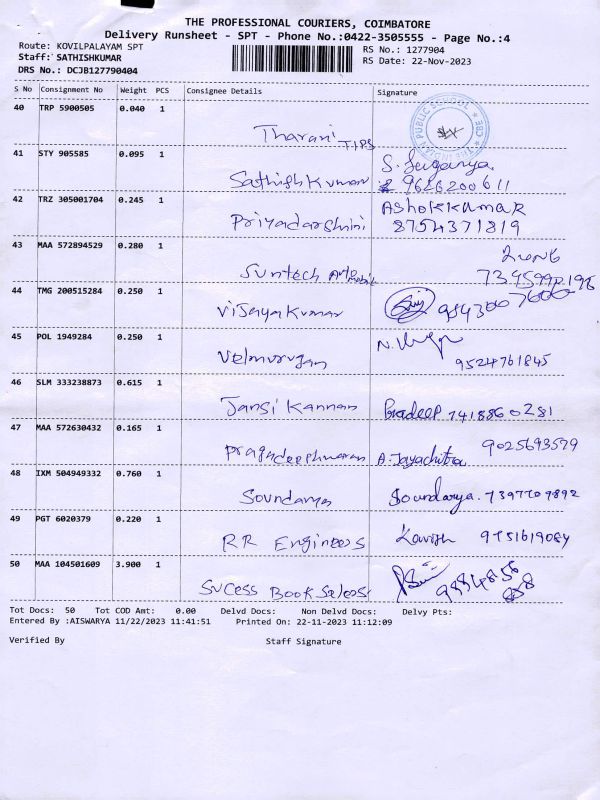 THE PROFESSIONAL COURIERS, COIMBATORE
Delivery Runsheet - SPT - Phone No.:0422-3505555 - Page No.:4
Route: KOVILPALAYAM SPT
RS No.: 1277904
Staff: SATHISHKUMAR
RS Date: 22-Nov-2023
DRS No.: DCJB127790404
S No Consignment No Weight PCS Consignee Details Signature
40 TRP 5900505 0.040 1
Tharani TIPS
PUBLIC SCHOOL CBE
41 STY 905585 0.095 1
Sathish Kumar S. Suganya
9626200611
42 TRZ 305001704 0.245 1 ASHOKKUMAR
Priyadarshini 8754371819
43 MAA 572894529 0.280 1
Suntech
44 TMG 200515284 0.250 1
Vijaya Kumar 9843007600
45 POL 1949284 0.250 1
Velmurugan 9524761845
46 SLM 333238873 0.615 1
Jansi Kannan Pradeep 7418860281
47 MAA 572630432 0.165 1
Pragadeeshwaran A. Jayachitra 9025693579
48 IXM 504949332 0.760 1
Soundarya Soundarya. 7397709892
49 PGT 6020379 0.220 1
RR Engineers 9751619084
50 MAA 104501609 3.900 1
Sucess Book Sales 9884856
858
Tot Docs: 50 Tot COD Amt: 0.00 Delvd Docs: Non Delvd Docs: Delvy Pts:
Entered By :AISWARYA 11/22/2023 11:41:51 Printed On: 22-11-2023 11:12:09
Verified By Staff Signature